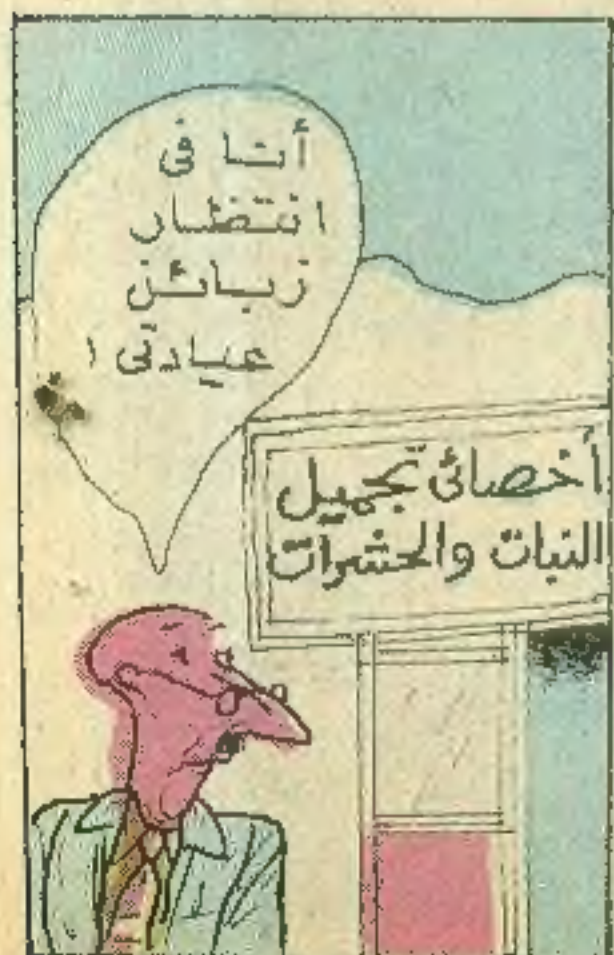 أنا فى
انتظار
زبائن
عيادتى !
أخصائى تجميل
النبات والحشرات